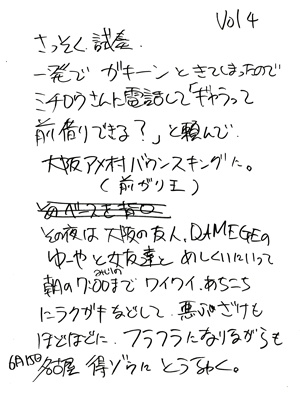 Vol 4
さっそく試奏.
一発で ガキーン ときてしまったので
ミチロウさんに電話して「ギャラって
前借りできる?」と頼んで.
大阪アメ村バウンスキングに。
(前ガリ王)
その夜は 大阪の友人, DAMEGEの
ゆーやと女友達と めしくいにいって
朝の7:00まで ワイワイ. あちこち
にラクガキなどして. 悪ふざけも
ほどほどに. フラフラになりながらも
6月15日 名古屋 得ゾウに とうちゃく。